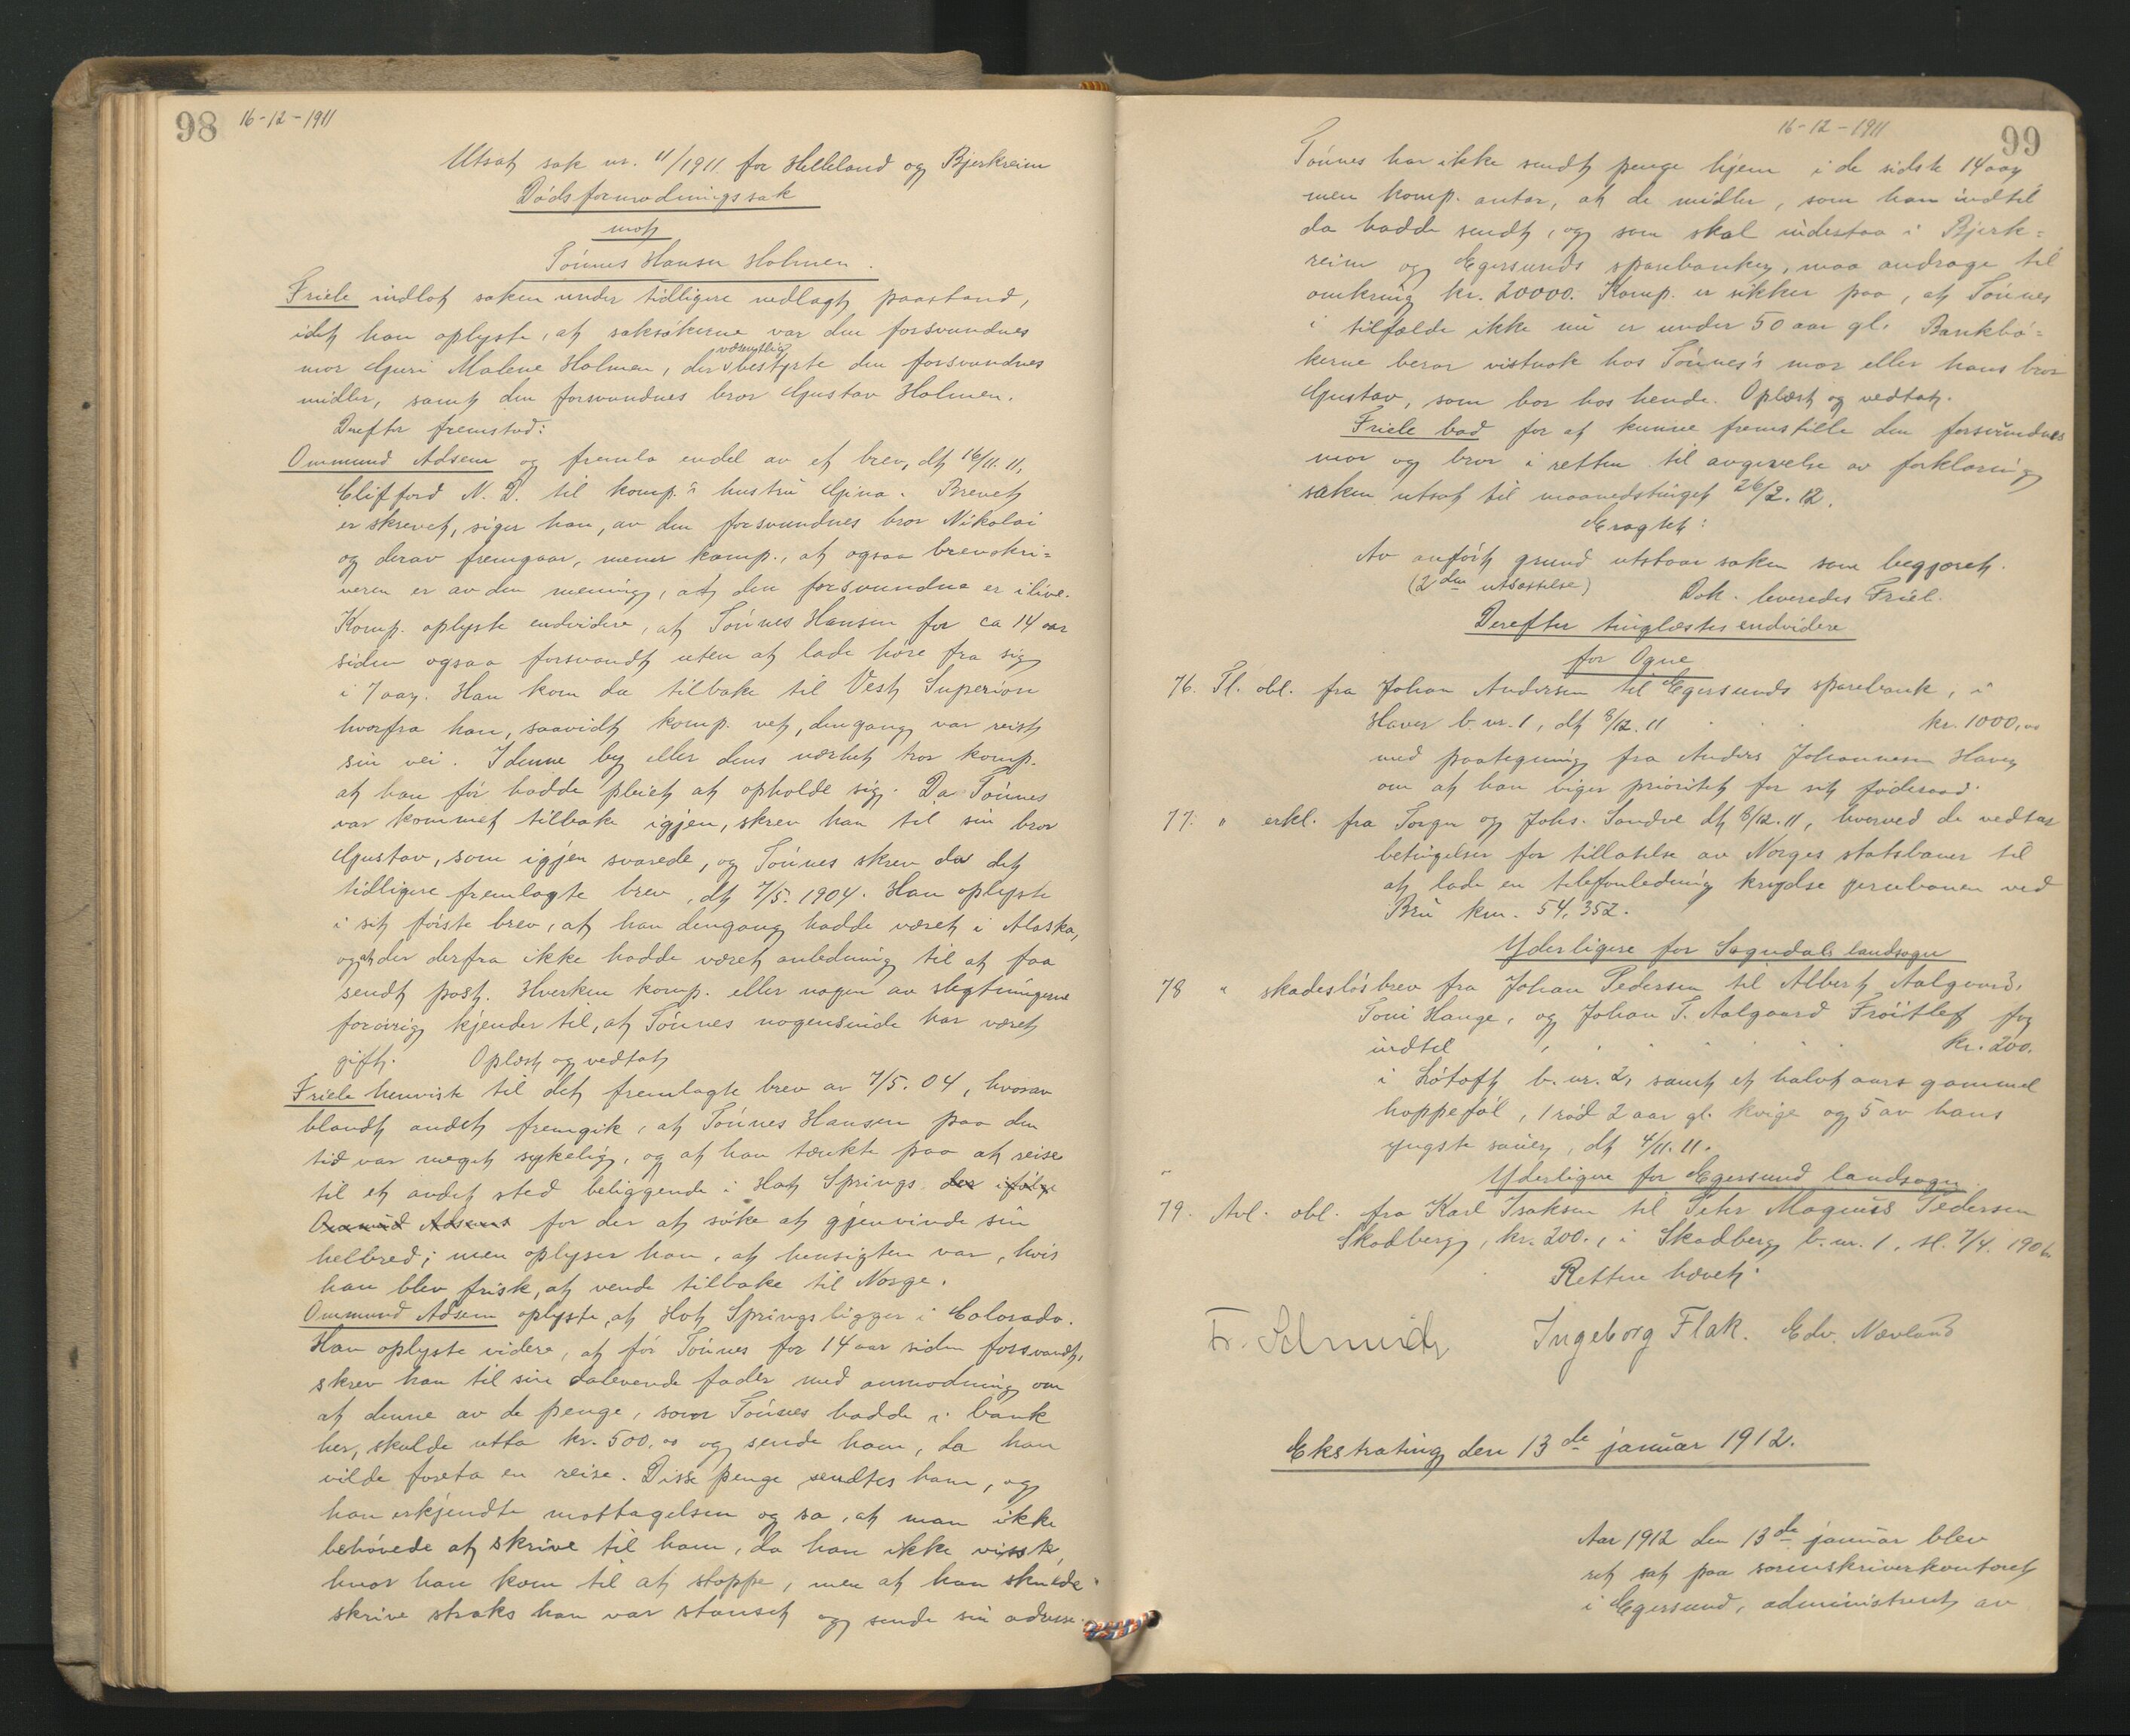 98 16-12-1911
Utsat sak nr. 11/1911 for Helleland og Bjerkreim
Dødsformodningssak
mot
Tønnes Hansen Holmen.
Friele indlot saken under tidligere nedlagt paastand,
idet han oplyste, at saksøkerne var den forsvundnes
mor Guri Malene Holmen, der væsentlig bestyrte den forsvundnes
midler, samt den forsvundnes bror Gustav Holmen.
Derefter fremstod:
Ommund Adsem og fremla endel av et brev, dt 16/11.11,
Clifford N. D. til komp.'s hustru Gina. Brevet
er skrevet, siger han, av den forsvundnes bror Nikolai
og derav fremgaar, mener komp., at ogsaa brevskri=
veren er av den mening, at den forsvundne er ilive.
Komp. oplyste endvidere, at Tønnes Hansen for ca 14 aar
siden ogsaa forsvandt uten at lade høre fra sig
i 7 aar. Han kom da tilbake til Vest Superior
hvorfra han, saavidt komp. vet, dengang var reist
sin vei. I denne by eller dens nærhet tror komp.
at han før hadde pleiet at opholde sig. Da Tønnes
var kommet tilbake igjen, skrev han til sin bror
Gustav, som igjen svarede, og Tønnes skrev da det
tidligere fremlagte brev, dt 7/5. 1904. Han oplyste
i sit første brev, at han dengang hadde været i Alaska,
og at der derfra ikke hadde været anledning til at faa
sendt post. Hverken komp. eller nogen av slegtningerne
forøvrig kjender til, at Tønnes nogensinde har været
gift. Oplæst og vedtat
Friele henviste til det fremlagte brev av 7/5. 04, hvorav
blandt andet fremgik, at Tønnes Hansen paa den
tid var meget sykelig, og at han tænkte paa at reise
til et andet sted beliggende i Hot Springs der ifølge
Ommund Adsems for der at søke at gjenvinde sin
helbred; men oplyser han, at hensigten var, hvis
han blev frisk, at vende tilbake til Norge.
Ommund Adsem oplyste, at Hot Springs ligger i Colorado.
Han oplyste videre, at før Tønnes for 14 aar siden forsvandt,
skrev han til sin dalevende fader med anmodning om
at denne av de penge, som Tønnes hadde i bank
her, skulde utta kr. 500.00 og sende ham, da han
vilde foreta en reise. Disse penge sendtes ham, og
han erkjendte mottagelsen og sa, at man ikke
behøvede at skrive til ham, da han ikke visste,
hvor han kom til at stoppe, men at han skulde
skrive straks han var stanset og sende sin adresse.
16-12-1911 99
Tønnes har ikke sendt penge hjem i de sidste 14 aar
men komp. antar, at de midler, som han indtil
da hadde sendt, og som skal indestaa i Bjerk=
reim og Egersunds sparebanker, maa andrage til
omkring kr. 20000. Komp. er sikker paa, at Tønnes
i tilfælde ikke nu er under 50 aar gl. Bankbø=
kerne beror vistnok hos Tønnes's mor eller hans bror
Gustav, som bor hos hende. Oplæst og vedtat.
Friele bad for at kunne fremstille den forsvundnes
mor og bror i retten til avgivelse av forklaring
saken utsat til maanedstinget 26/2. 12.
Eragtet:
Av anført grund utstaar saken som begjæret.
(2den utsættelse) Dok. leveredes Friel.
Derefter tinglæstes endvidere
for Ogne
76. Tl. obl. fra Johan Andersen til Egersunds sparebank, i
Haver b. nr. 1, dt 8/12. 11 . . . kr. 1000,00
med paategning fra Anders Johannesen Haver
om at han viger prioritet for sit føderaad.
77. " erkl. fra Torger og Johs. Sandve dt 8/12.11, hvorved de vedtar
betingelser for tillatelse av Norges statsbaner til
at lade en telefonledning krydse jernbanen ved
Bru km. 54,352.
Yderligere for Sogndals landsogn
78 " skadesløsbrev fra Johan Pedersen til Albert Aalgaard,
Toni Hauge, og Johan T. Aalgaard Frøitlef for
indtil . . . . . . . kr. 200.
i Løtoft b. nr. 2, samt et halvt aars gammel
hoppeføl, 1 rød 2 aar gl. kvige og 5 av hans
yngste sauer, dt 4/11.11.
Yderligere for Egersund landsogn.
79. Avl. obl. fra Karl Isaksen til Peter Magnus Pedersen
Skadberg, kr. 200., i Skadberg b. nr. 1, tl. 7/4. 190
Retten hævet.
Fr. Schmidt Ingeborg Flak. Edv. Nævland
Ekstrating den 13de januar 1912.
Aar 1912 den 13de januar blev
ret sat paa sorenskriverkontoret
i Egersund, administreret av